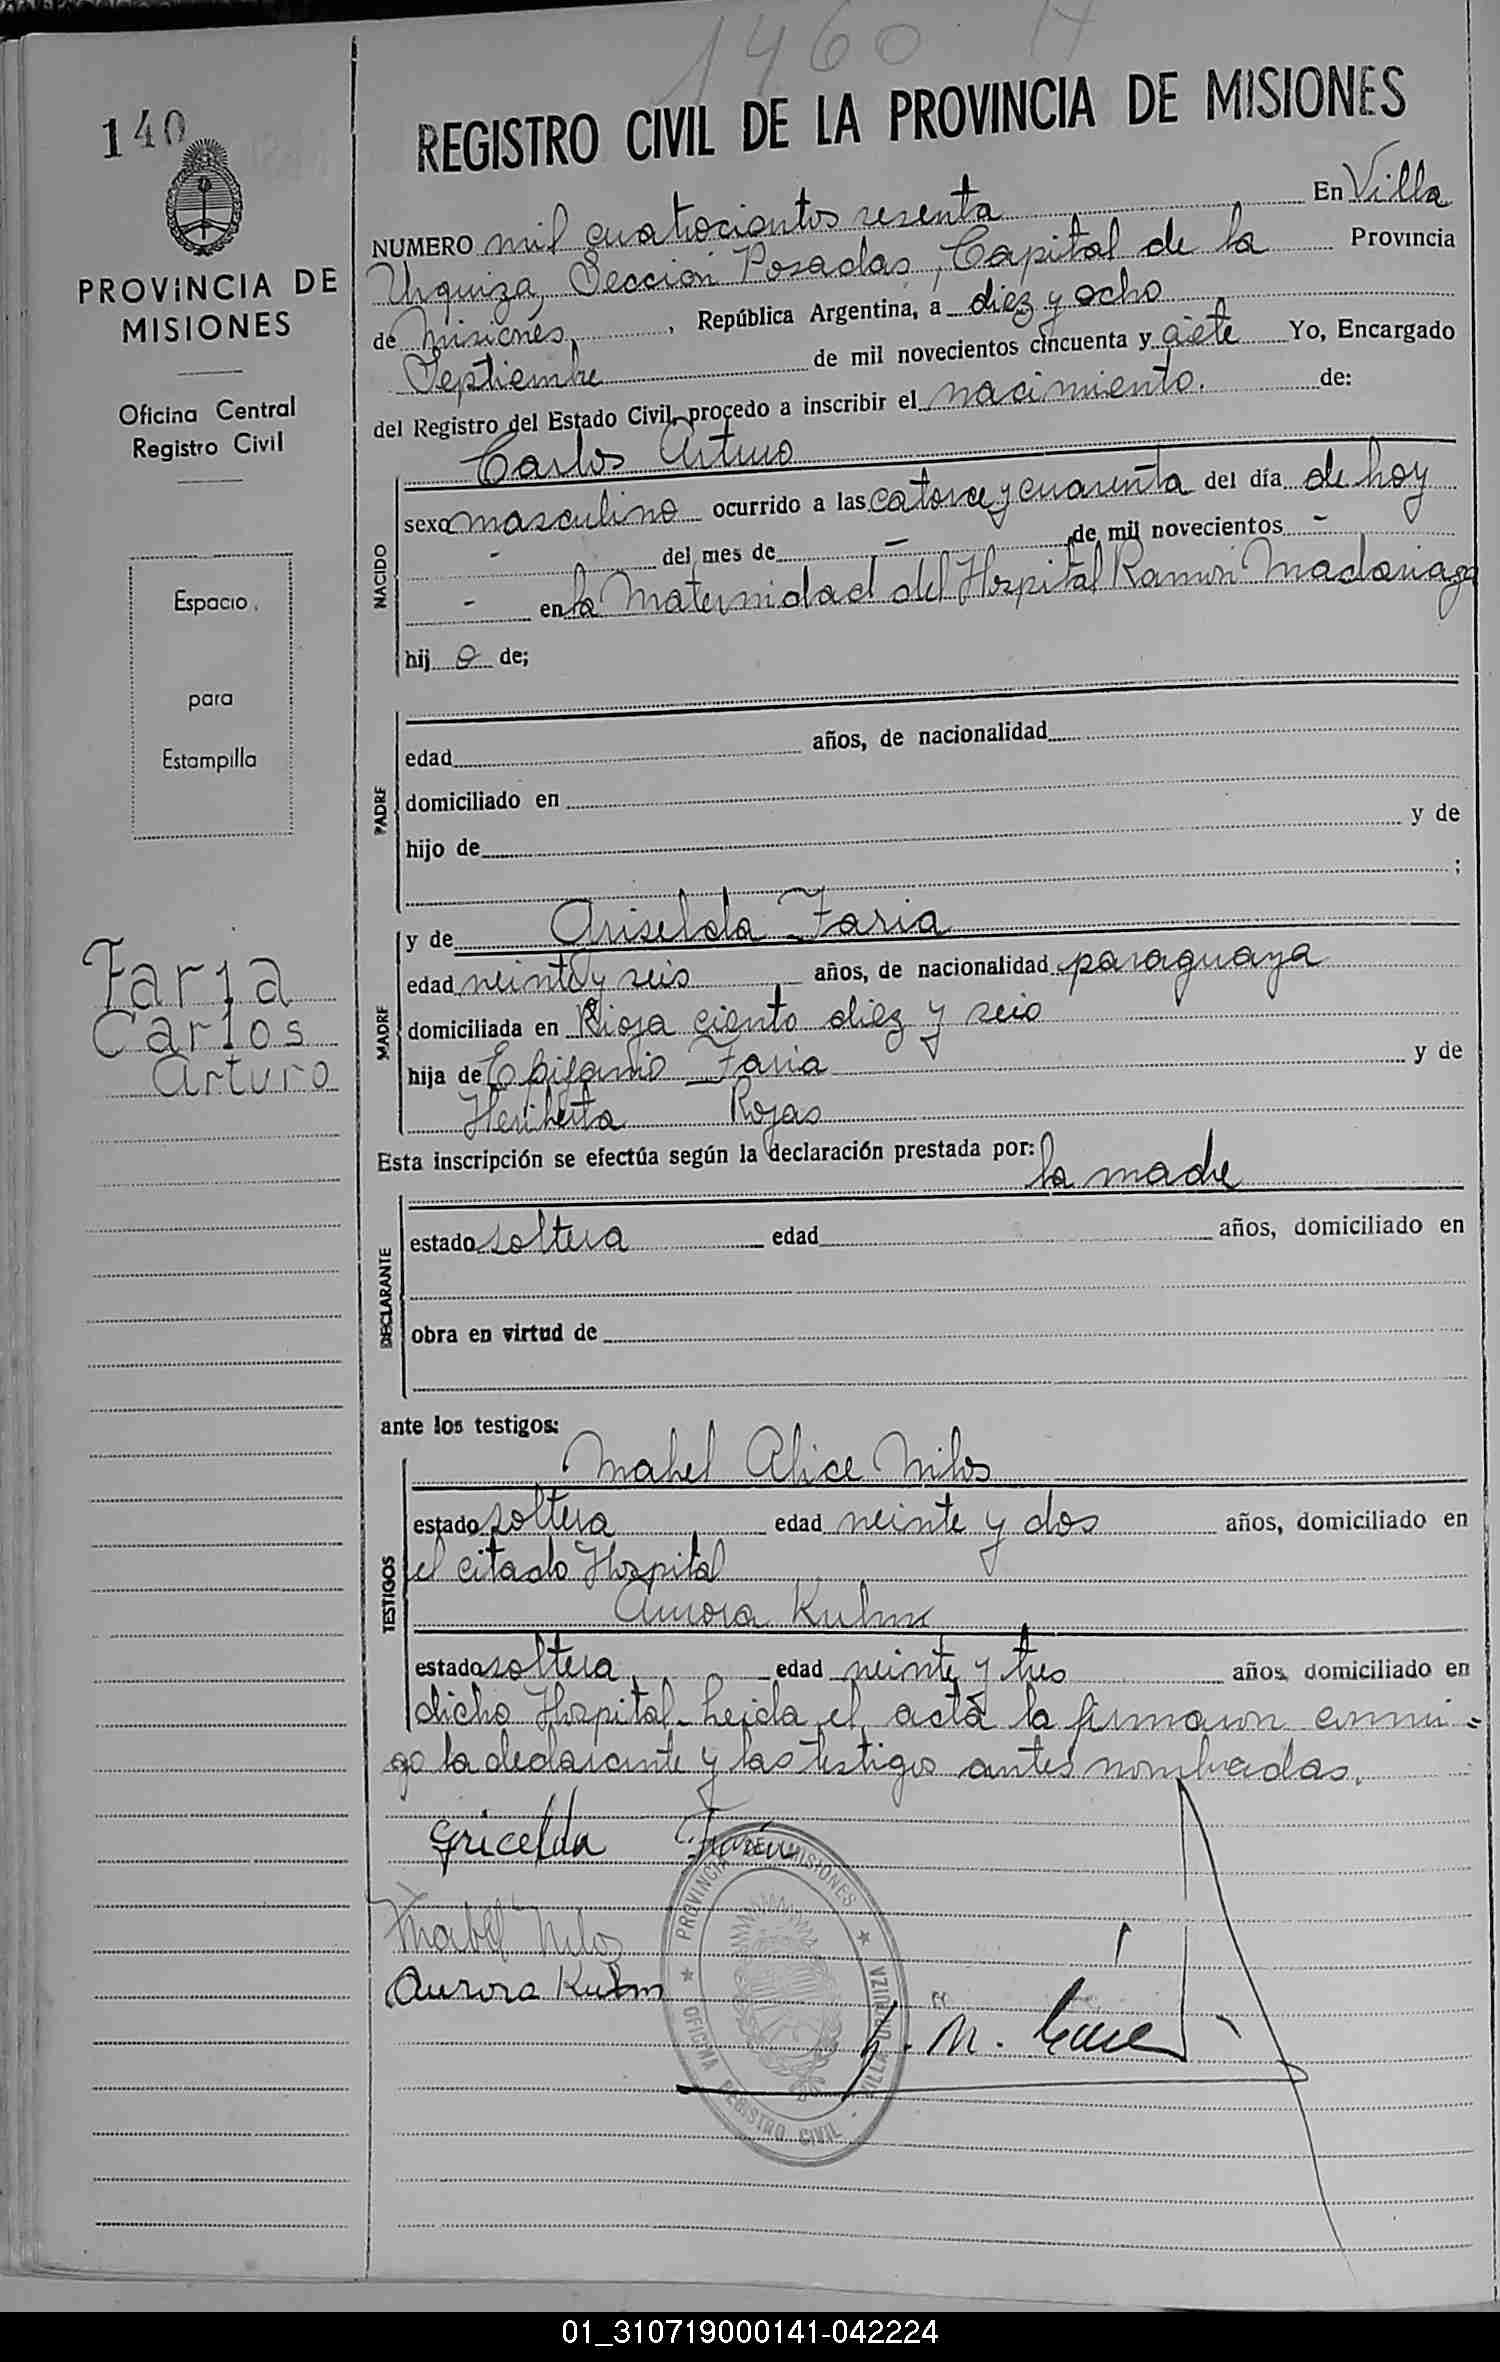 1460 H
140
REGISTRO CIVIL DE LA PROVINCIA DE MISIONES
PROVINCIA DE
MISIONES
Oficina Central
Registro Civil
Espacio
para
Estampilla
Faria
Carlos
Arturo
NUMERO mil cuatrocientos sesenta En Villa
Urquiza, Sección Posadas, Capital de la Provincia
de Misiones, República Argentina, a diez y ocho
Septiembre de mil novecientos cincuenta y siete Yo, Encargado
del Registro del Estado Civil, procedo a inscribir el nacimiento. de:
Carlos Arturo
NACIDO
sexo masculino ocurrido a las catorce y cuarenta del día de hoy
- del mes de - de mil novecientos -
- en la Maternidad del Hospital Ramón Madariaga
hij o de;
PADRE
edad años, de nacionalidad
domiciliado en
hijo de y de
;
MADRE
y de Griselda Faria
edad veinte y seis años, de nacionalidad paraguaya
domiciliada en Rioja ciento diez y seis
hija de Epifanio Faria y de
Heriberta Rojas
Esta inscripción se efectúa según la declaración prestada por: la madre
DECLARANTE
estado soltera edad años, domiciliado en
obra en virtud de
ante los testigos:
Mabel Alice Nilos
TESTIGOS
estado soltera edad veinte y dos años, domiciliado en
el citado Hospital
Aurora Kuhm
estado soltera edad veinte y tres años domiciliado en
dicho Hospital. Leida el acta la firmaron conmi=
go la declarante y las testigos antes nombradas.
Gricelda Faria
Mabel Nilos
Aurora Kuhm
PROVINCIA DE MISIONES ★ VILLA URQUIZA - OFICINA REGISTRO CIVIL ★
01_310719000141-042224